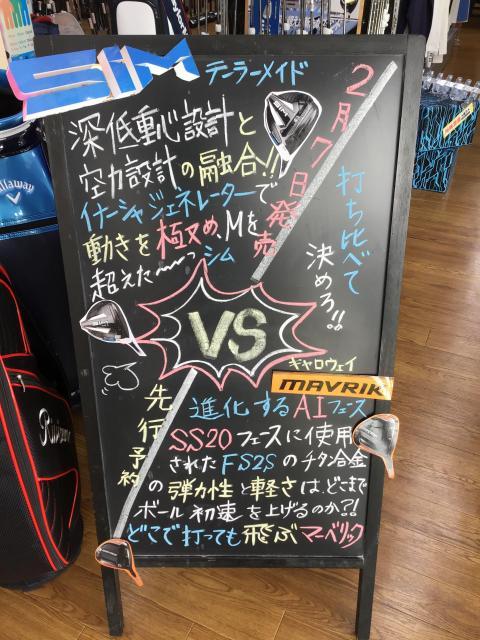 SIM
テーラーメイド
深低重心設計と
空力設計の融合!!
イナーシャジェネレーターで
動きを極め、Mを
超えた〜っシム
2月7日発売
打ち比べて
決めろ!!
VS
キャロウェイ
MAVRIK
先行予約
進化するAIフェース
SS20フェースに使用
されたFS2Sのチタン合金
の弾力性と軽さは、どこまで
ボール初速を上げるのか?!
どこで打っても飛ぶマーベリック
Callaway